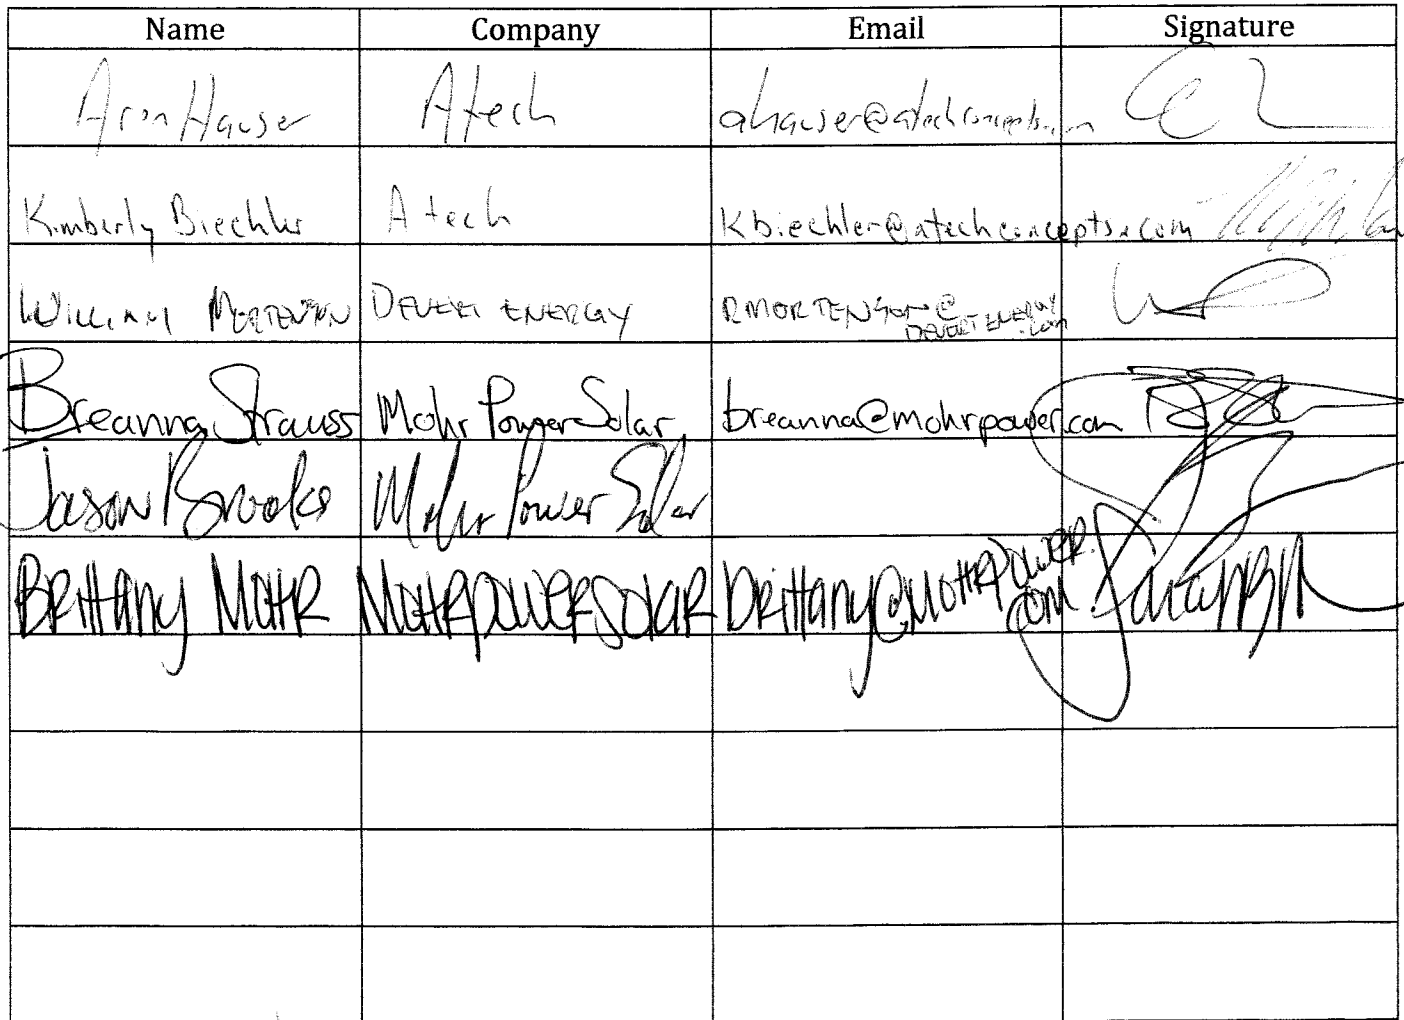 Name Company Email Signature
Aron Hauser Atech ahauser@atechconcepts.com
Kimberly Biechler Atech kbiechler@atechconcepts.com
WILLIAM MORTENSON ENERGY RMORTENSON@
.com
Breanna Strauss Mohr Power Solar breanna@mohrpower.com
Jason Brooks Mohr Power Solar
BRittany MOHR MOHRPOWERSOLAR BRittany@MOHRPOWER.
com